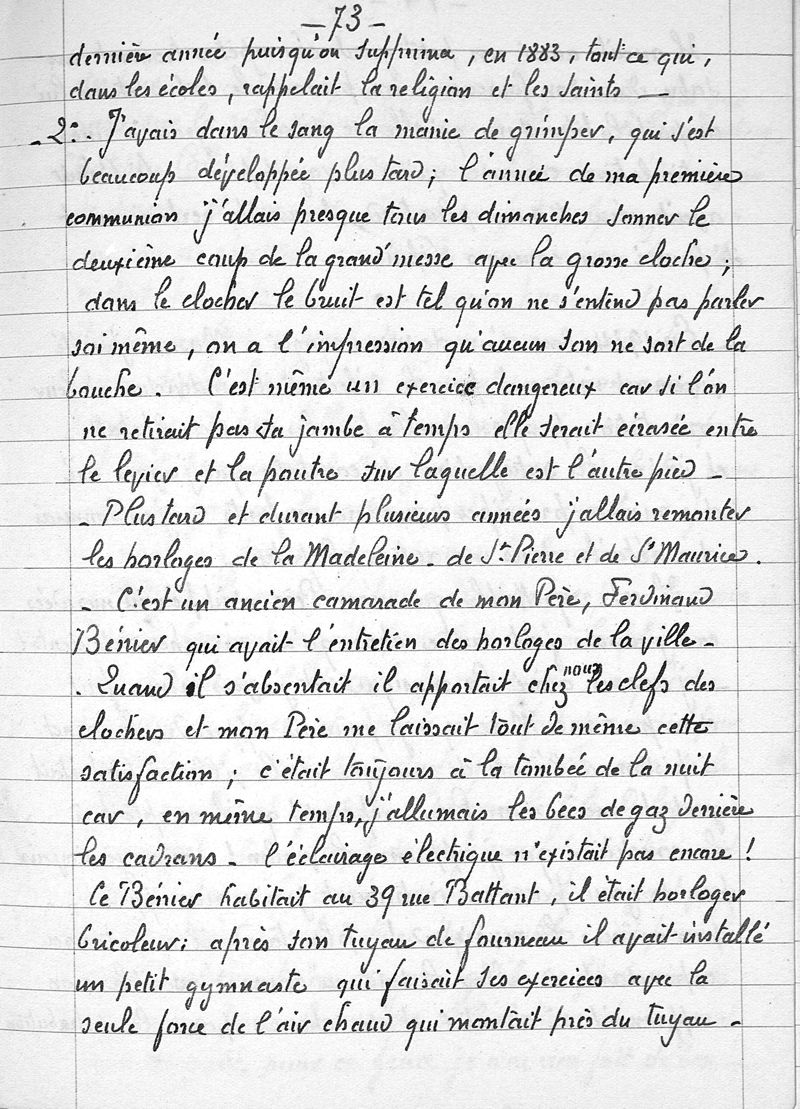 — 73 —
dernière année puisqu'on supprima, en 1883, tout ce qui,
dans les écoles, rappelait la religion et les saints —
- 2º. J'avais dans le sang la manie de grimper, qui s'est
beaucoup développée plus tard; l'année de ma première
communion j'allais presque tous les dimanches sonner le
deuxième coup de la grand'messe avec la grosse cloche;
dans le clocher le bruit est tel qu'on ne s'entend pas parler
soi même, on a l'impression qu'aucun son ne sort de la
bouche. C'est même un exercice dangereux car si l'on
ne retirait pas sa jambe à temps elle serait écrasée entre
le levier et la poutre sur laquelle est l'autre pied -
- Plus tard et durant plusieurs années j'allais remonter
les horloges de la Madeleine - de St. Pierre et de St Maurice.
- C'est un ancien camarade de mon Père, Ferdinand
Bénier qui avait l'entretien des horloges de la ville -
. Quand il s'absentait il apportait chez nous les clefs des
clochers et mon Père me laissait tout de même cette
satisfaction; c'était toujours à la tombée de la nuit
car, en même temps, j'allumais les becs de gaz derrière
les cadrans - l'éclairage électrique n'existait pas encore!
Ce Bénier habitait au 39 rue Battant, il était horloger
bricoleur; après son tuyau de fourneau il avait installé
un petit gymnaste qui faisait ses exercices avec la
seule force de l'air chaud qui montait près du tuyau -